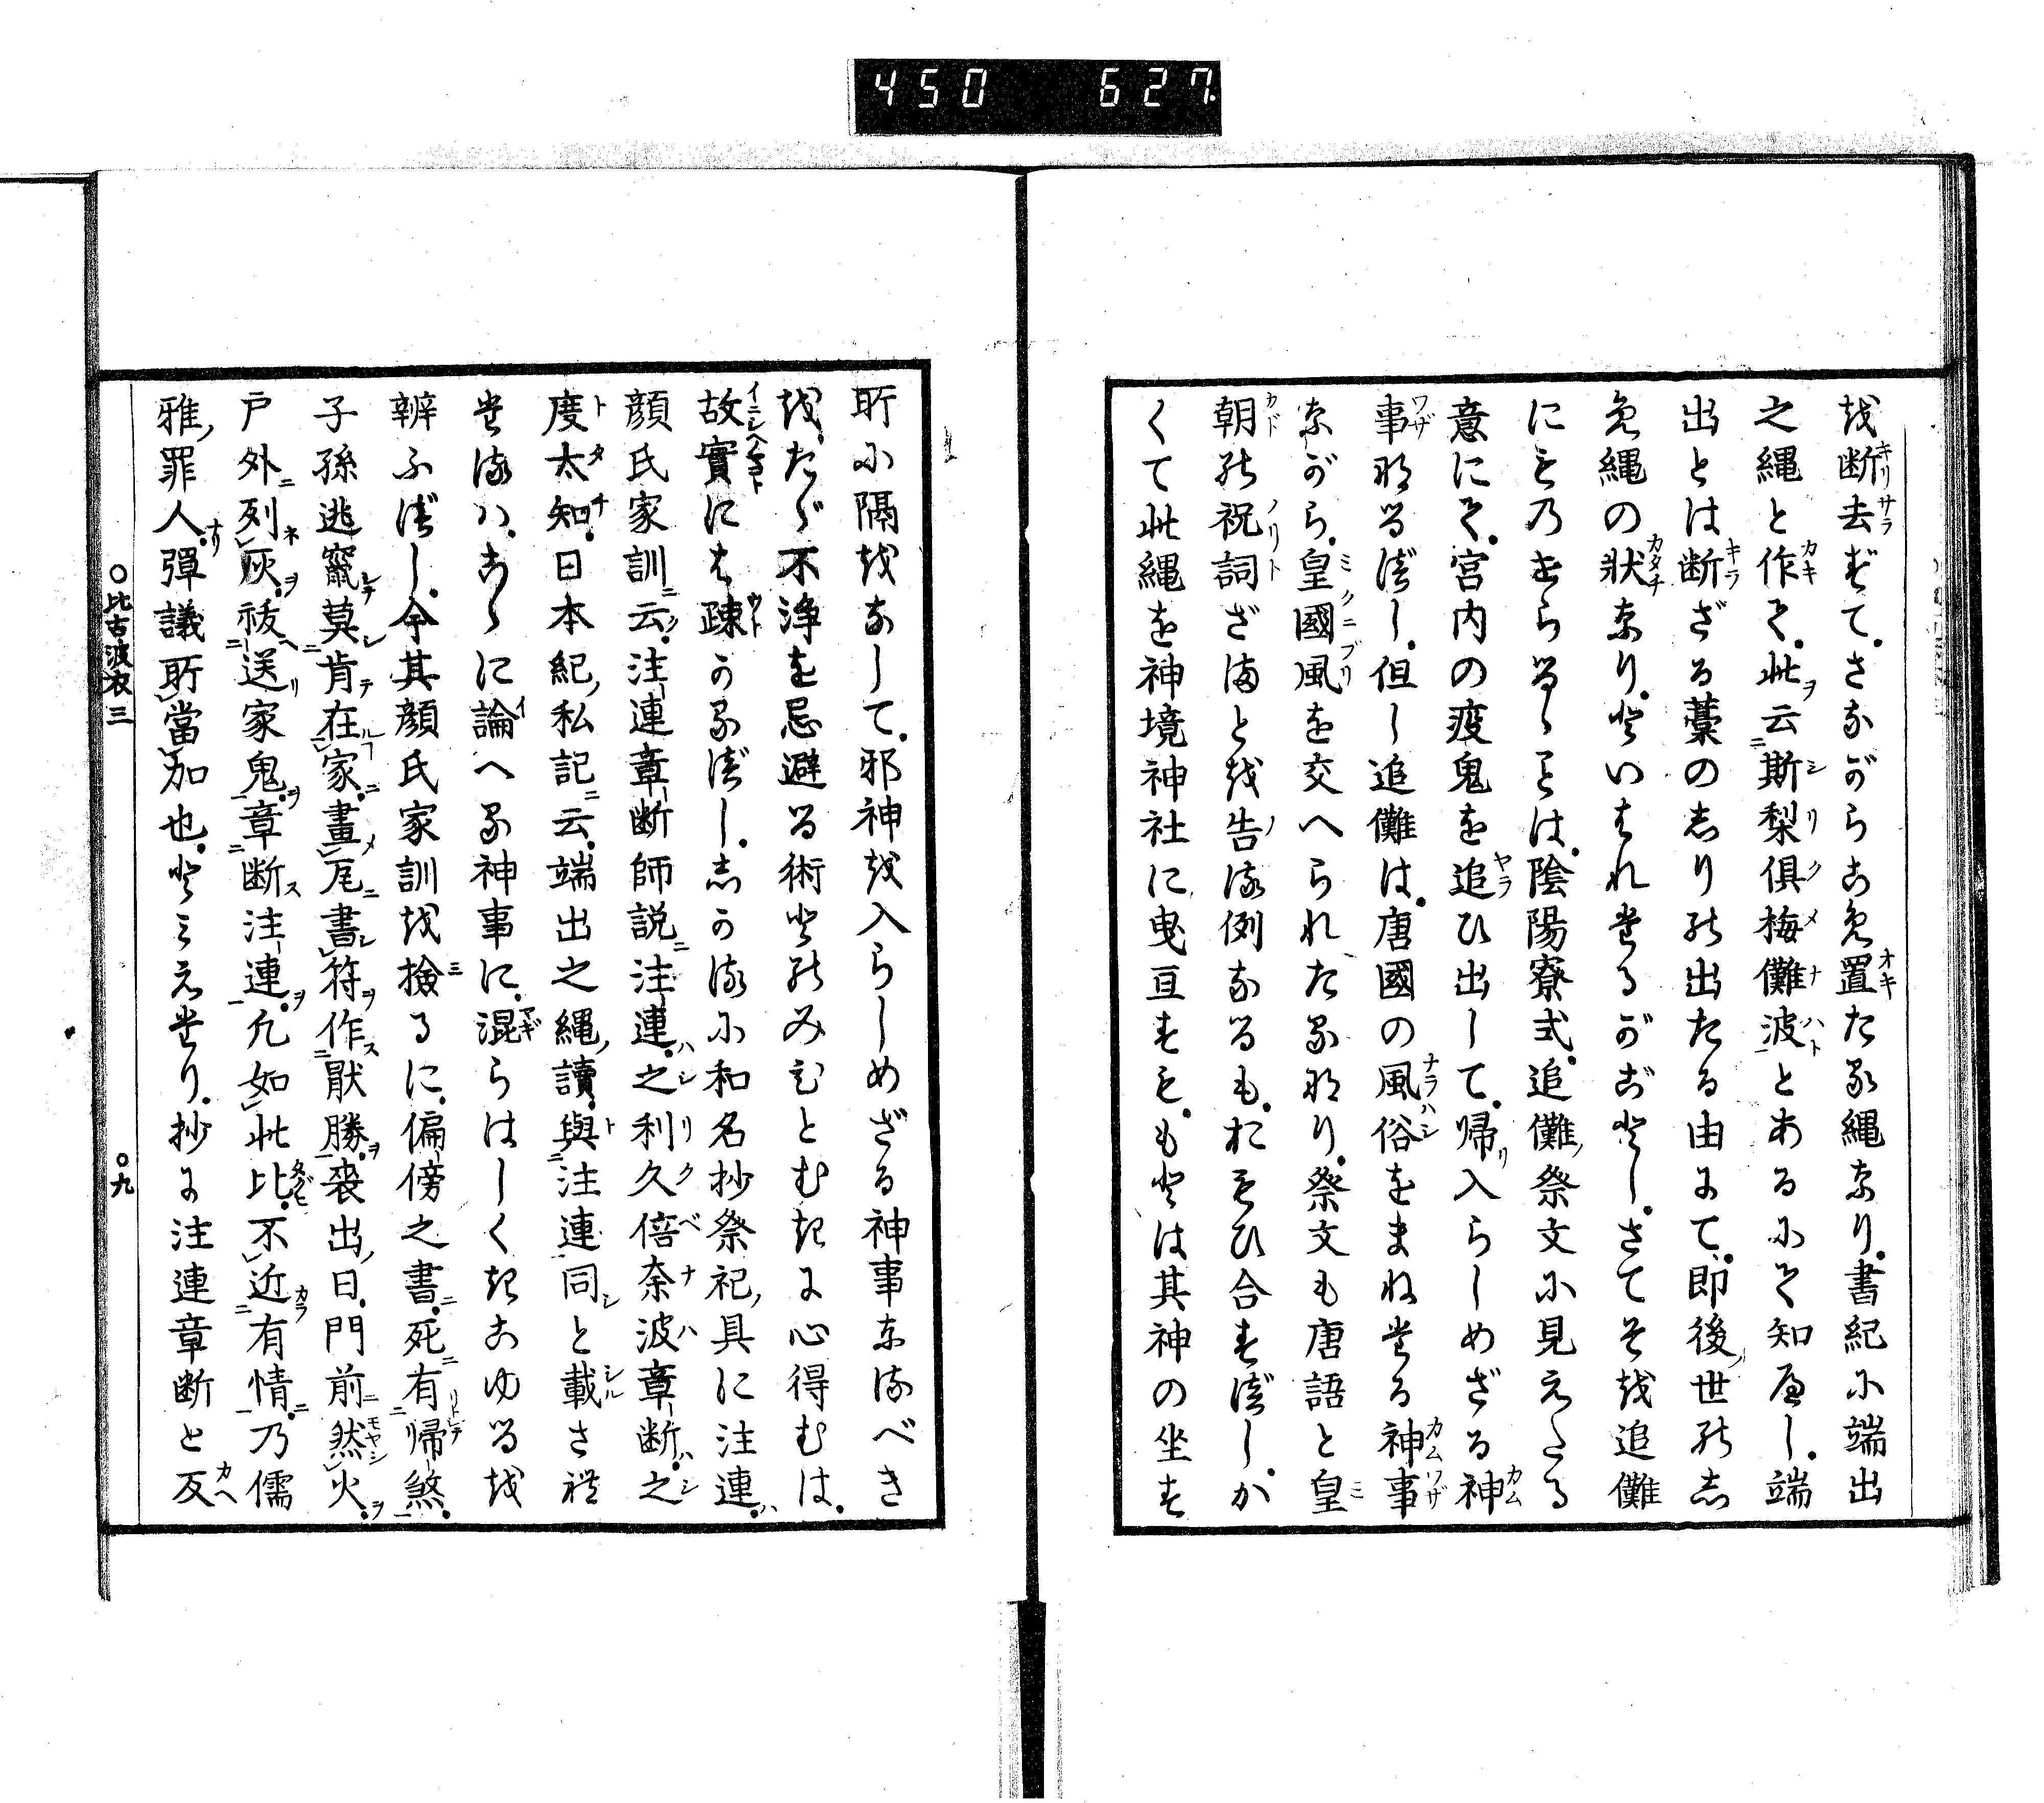 450 627
を断去ずて、さながらこめ置たる縄なり。書紀に端出
之縄と作て、此云斯梨倶梅儺波とあるにて知べし。端
出とは断ざる藁のしりの出たる由にて、即後世のし
め縄の状なり。といはれたるがごとし。さてそを追儺
にものせらるゝことは、陰陽寮式、追儺祭文に見えたる
意にて、宮内の疫鬼を追ひ出して、帰入らしめざる神
事なるべし。但し追儺は、唐國の風俗をまねたる神事
ながら、皇國風を交へられたるなり。祭文も唐語と皇
朝の祝詞ざまとを告る例なるも、おもひ合すべし。か
くて此縄を神境神社に曳亘すも、もとは其神の坐す
所に隔をなして、邪神を入らしめざる神事なるべき
を、たゞ不浄を忌避る術とのみひとむきに心得むは、
故實にも疎かるべし。しかるに和名抄祭祀具に注連、
顔氏家訓云、注連章断師説注連、之利久倍奈波章断、之
度太知、日本紀私記云、端出之縄、讀與注連同と載され
たるハ、こゝに論へる神事に、混らはしくきこゆるを
辨ふべし、今其顔氏家訓を撿るに、偏傍之書、死有帰煞、
子孫逃竄莫肯在家、畫瓦書符作猒勝、喪出日、門前然火、
戸外列灰、祓送家鬼、章断注連、凡如此比、不近有情、乃儒
雅罪人、彈議所當加也、とミえたり。抄に注連章断と反
○比古波衣三 ○九